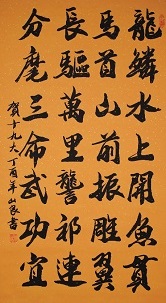 龍鱗水上開魚貫
馬首山前振雕翼
長驅萬里讋祁連
分麾三命武功宜
賀十九大丁酉年山書